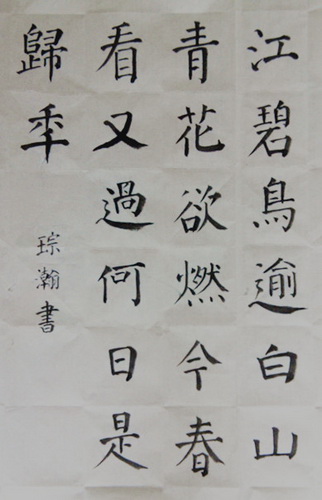 江碧鳥逾白山
青花欲燃今春
看又過何日是
歸秊
琮瀚書